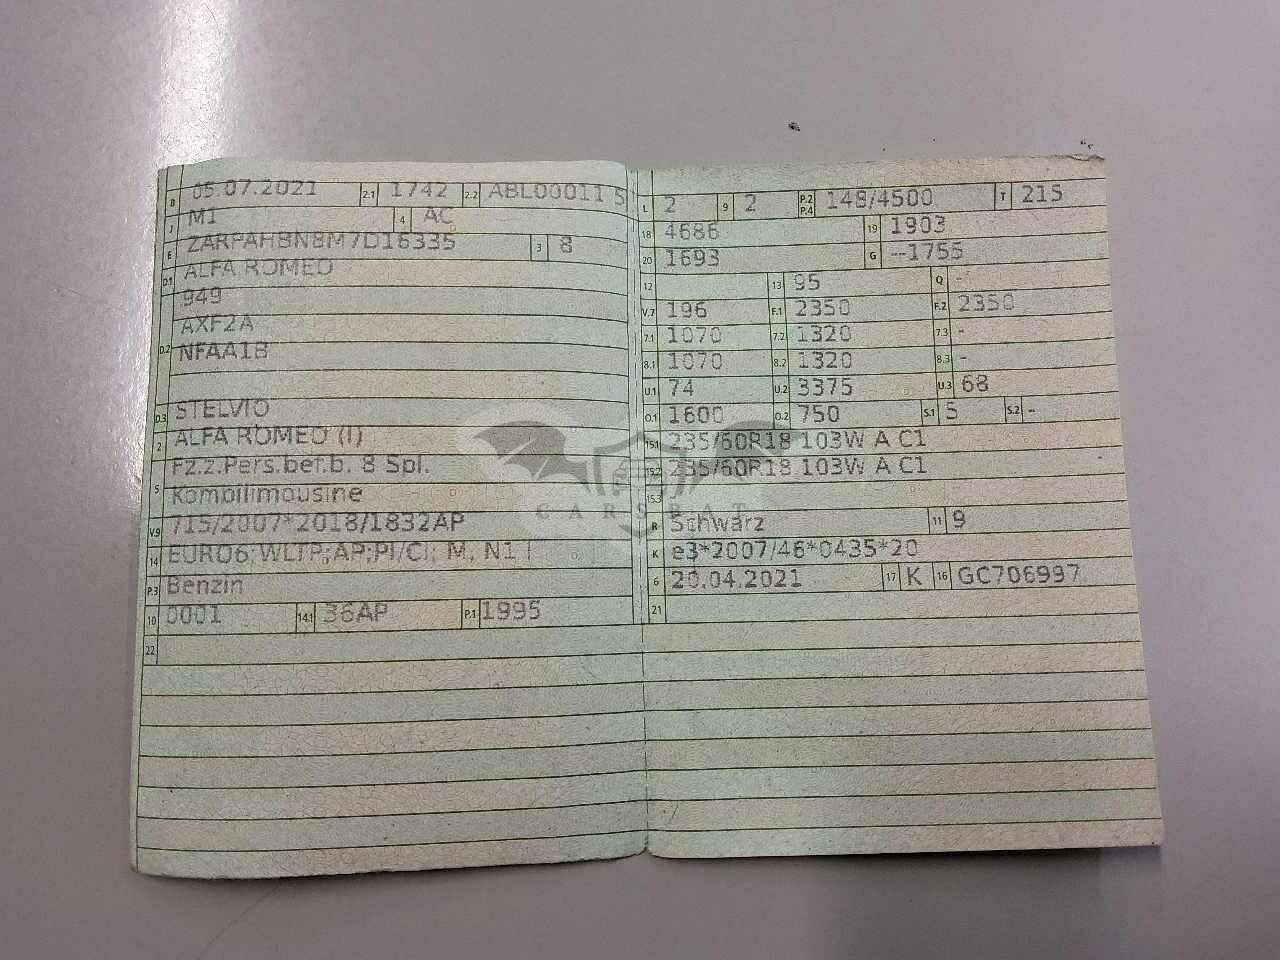 B 05.07.2021 2.1 1742 2.2 ABL00011 5
J M1 4 AC
E ZARPAHBN8M7D16335 3 8
D.1 ALFA ROMEO
949
D.2 AXF2A
NFAA1B
D.3 STELVIO
2 ALFA ROMEO (I)
5 Fz.z.Pers.bef.b. 8 Spl.
Kombilimousine
V.9 715/2007*2018/1832AP
14 EURO6;WLTP;AP;PI/CI; M, N1 I
P.3 Benzin
10 0001 14.1 36AP P.1 1995
22
L 2 9 2 P.2 P.4 148/4500 T 215
18 4686 19 1903
20 1693 G --1755
12 13 95 Q -
V.7 196 F.1 2350 F.2 2350
7.1 1070 7.2 1320 7.3 -
8.1 1070 8.2 1320 8.3 -
U.1 74 U.2 3375 U.3 68
O.1 1600 O.2 750 S.1 5 S.2 -
15.1 235/60R18 103W A C1
15.2 235/60R18 103W A C1
15.3 -
R Schwarz 11 9
K e3*2007/46*0435*20
6 20.04.2021 17 K 16 GC706997
21
CARSBAT